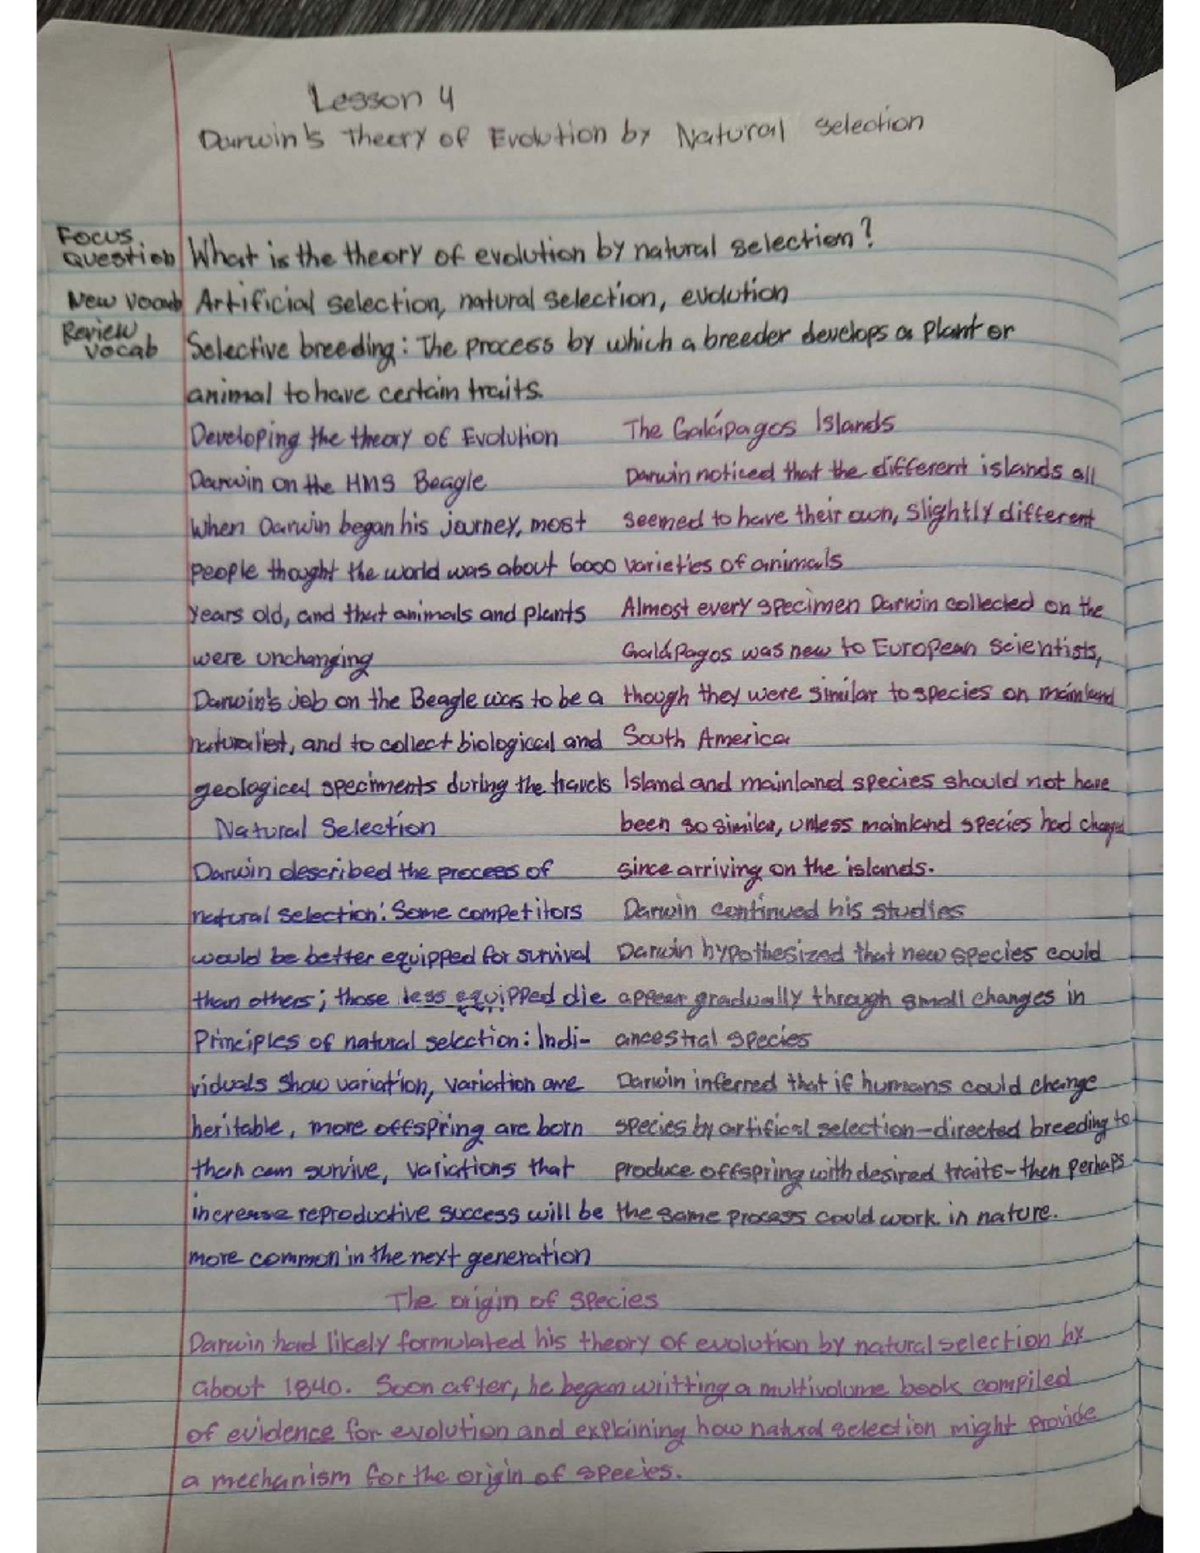 Lesson 4
Darwin's Theory of Evolution by Natural Selection
Focus Question
What is the theory of evolution by natural selection?
New Vocab
Artificial selection, natural selection, evolution
Review Vocab
Selective breeding: The process by which a breeder develops a plant or
animal to have certain traits.
Developing the theory of Evolution
Darwin on the HMS Beagle
When Darwin began his journey, most
people thought the world was about 6000
years old, and that animals and plants
were unchanging
Darwin's job on the Beagle was to be a
naturalist, and to collect biological and
geological speciments during the travels
Natural Selection
Darwin described the process of
natural selection: Some competitors
would be better equipped for survival
than others; those less equipped die
Principles of natural selection: Indi-
viduals show variation, variation are
heritable, more offspring are born
than can survive, variations that
increase reproductive success will be
more common in the next generation
The Galápagos Islands
Darwin noticed that the different islands all
seemed to have their own, slightly different
varieties of animals
Almost every specimen Darwin collected on the
Galápagos was new to European scientists,
though they were similar to species on mainland
South America
Island and mainland species should not have
been so similar, unless mainland species had changed
since arriving on the islands.
Darwin continued his studies
Darwin hypothesized that new species could
appear gradually through small changes in
ancestral species
Darwin inferred that if humans could change
species by artifical selection-directed breeding to
produce offspring with desired traits-then perhaps
the same process could work in nature.
The origin of species
Darwin had likely formulated his theory of evolution by natural selection by
about 1840. Soon after, he began writting a multivolume book compiled
of evidence for evolution and explaining how natural selection might provide
a mechanism for the origin of species.